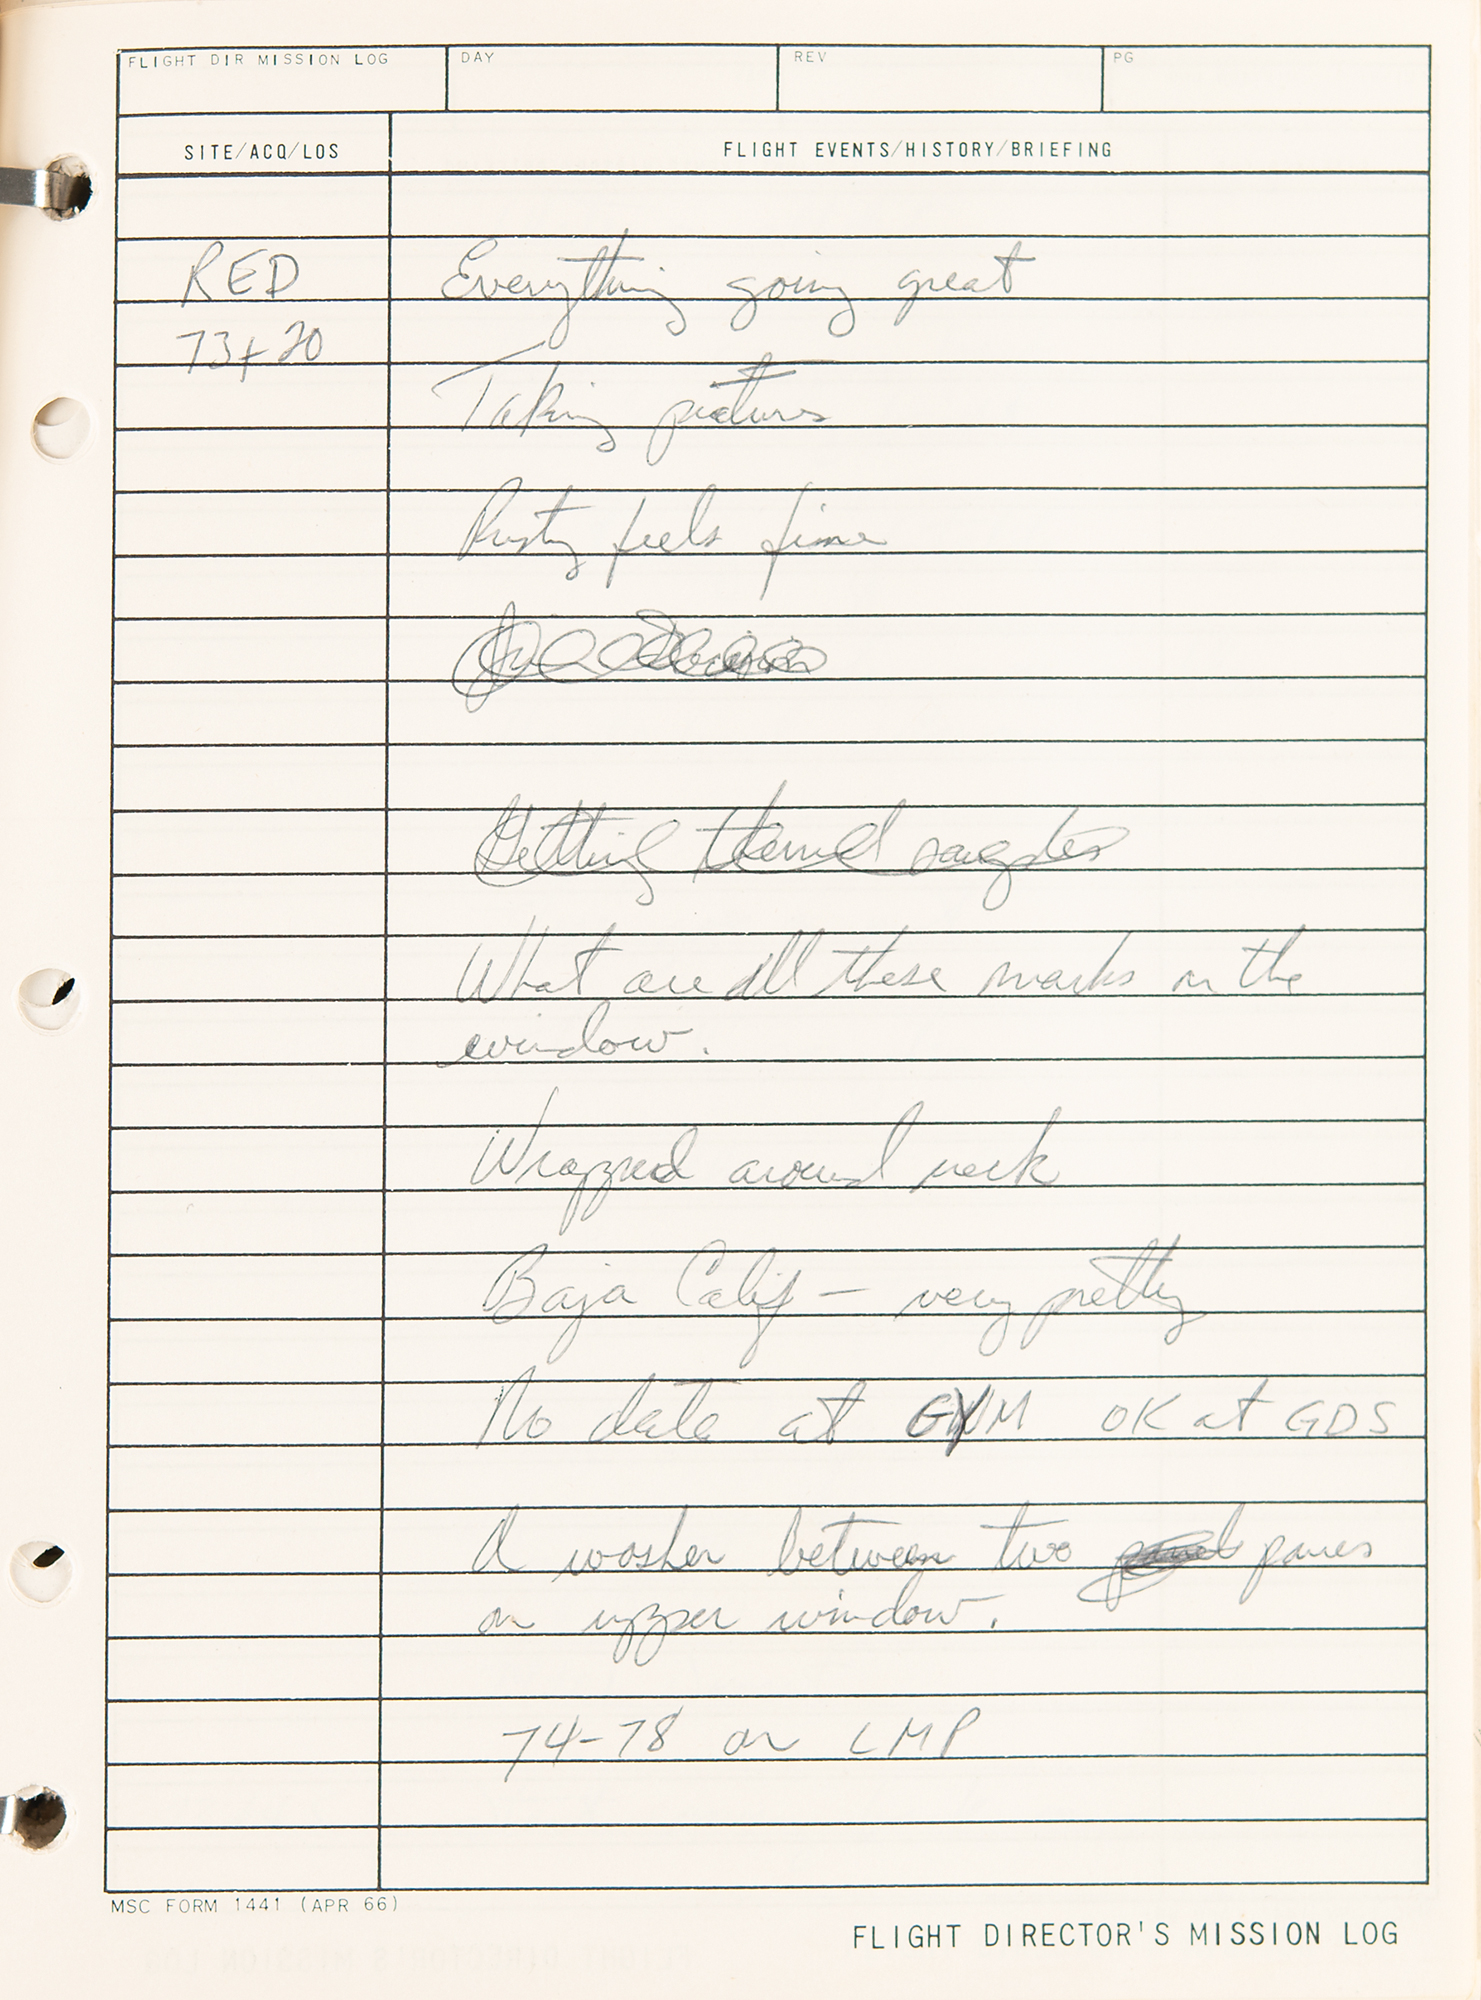 FLIGHT DIR MISSION LOG DAY REV PG
SITE/ACQ/LOS FLIGHT EVENTS/HISTORY/BRIEFING
RED Everything going great
73+20
Taking pictures
Rusty feels fine
Getting thermal samples
What are all these marks on the
window.
Wrapped around neck
Baja Calif — very pretty
No data at GYM OK at GDS
A washer between two panes
on upper window.
74-78 on LMP
MSC FORM 1441 (APR 66)
FLIGHT DIRECTOR'S MISSION LOG